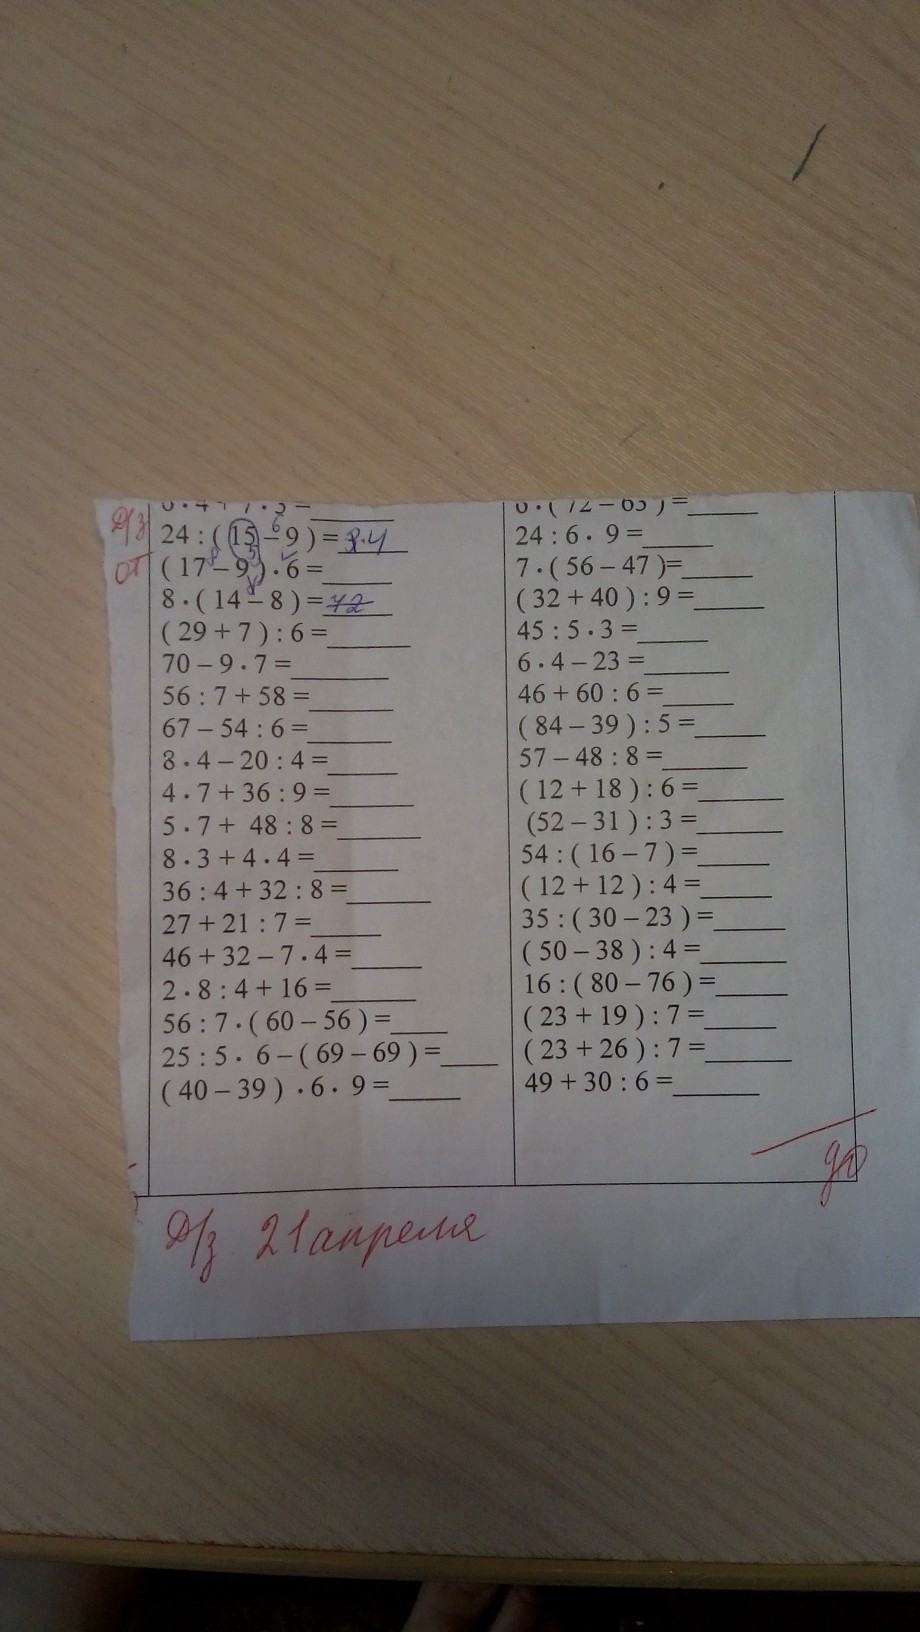 Д/з
от
24 : ( 15 – 9 ) =
( 17 – 9 ) · 6 =
8 · ( 14 – 8 ) = 72
( 29 + 7 ) : 6 =
70 – 9 · 7 =
56 : 7 + 58 =
67 – 54 : 6 =
8 · 4 – 20 : 4 =
4 · 7 + 36 : 9 =
5 · 7 + 48 : 8 =
8 · 3 + 4 · 4 =
36 : 4 + 32 : 8 =
27 + 21 : 7 =
46 + 32 – 7 · 4 =
2 · 8 : 4 + 16 =
56 : 7 · ( 60 – 56 ) =
25 : 5 · 6 – ( 69 – 69 ) =
( 40 – 39 ) · 6 · 9 =
6 · ( 72 – 63 ) =
24 : 6 · 9 =
7 · ( 56 – 47 )=
( 32 + 40 ) : 9 =
45 : 5 · 3 =
6 · 4 – 23 =
46 + 60 : 6 =
( 84 – 39 ) : 5 =
57 – 48 : 8 =
( 12 + 18 ) : 6 =
(52 – 31 ) : 3 =
54 : ( 16 – 7 ) =
( 12 + 12 ) : 4 =
35 : ( 30 – 23 ) =
( 50 – 38 ) : 4 =
16 : ( 80 – 76 ) =
( 23 + 19 ) : 7 =
( 23 + 26 ) : 7 =
49 + 30 : 6 =
до
Д/з 21 апреля